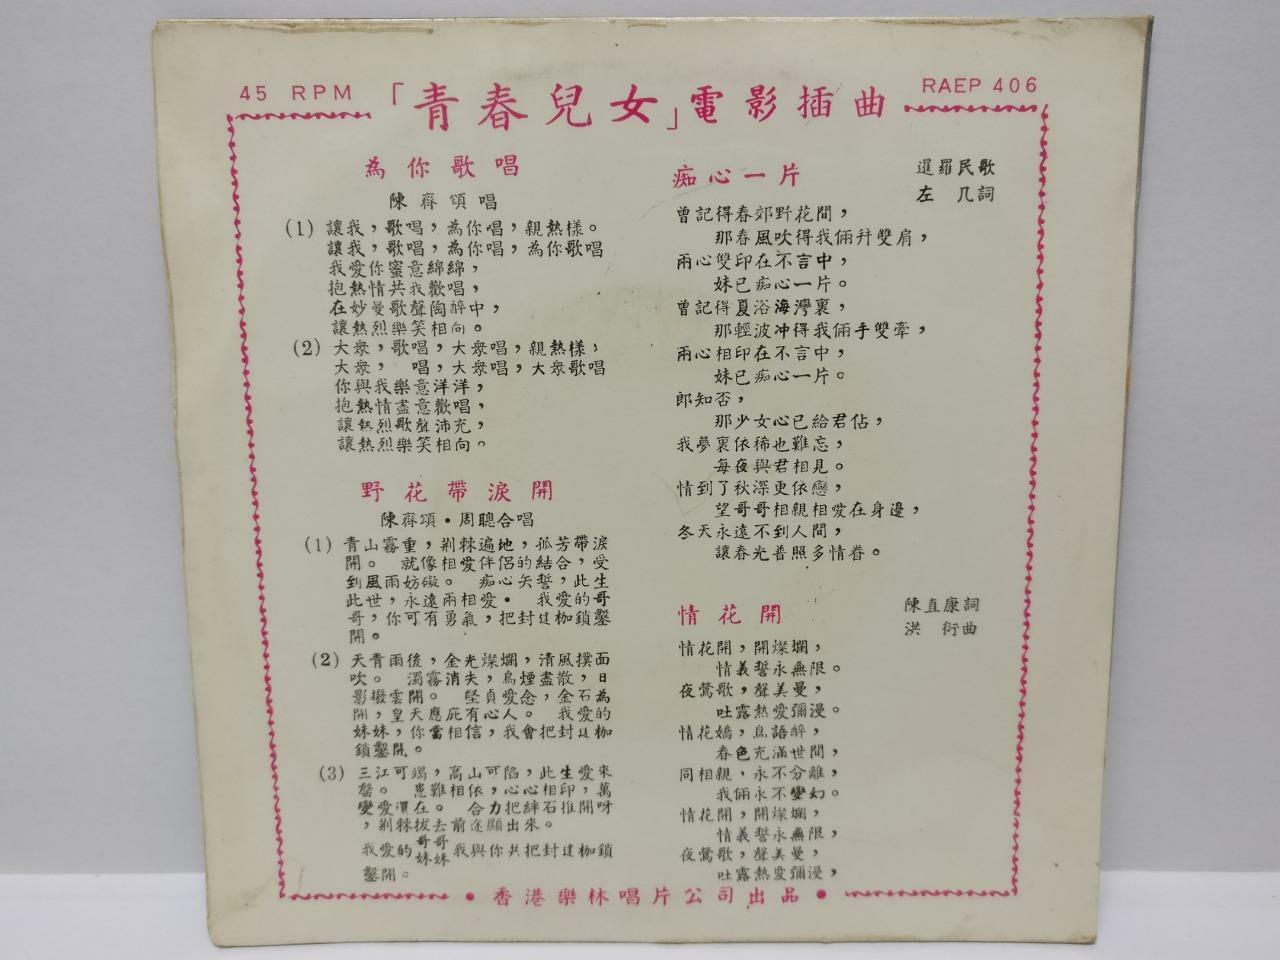 45 RPM
「青春兒女」電影插曲
RAEP 406
為你歌唱
陳齊頌唱
(1) 讓我,歌唱,為你唱,親熱樣。
讓我,歌唱,為你唱,為你歌唱
我愛你蜜意綿綿,
抱熱情共我歡唱,
在妙曼歌聲陶醉中,
讓熱烈樂笑相向。
(2) 大衆,歌唱,大衆唱,親熱樣,
大衆, 唱,大衆唱,大衆歌唱
你與我樂意洋洋,
抱熱情盡意歡唱,
讓熱烈歌聲沛充,
讓熱烈樂笑相向。
野花帶淚開
陳齊頌・周聰合唱
(1) 青山霧重,荆棘遍地,孤芳帶淚
開。 就像相愛伴侶的結合,受
到風雨妨礙。 痴心矢誓,此生
此世,永遠兩相愛。 我愛的哥
哥,你可有勇氣,把封建枷鎖鑿
開。
(2) 天青雨後,金光燦爛,清風撲面
吹。 濁霧消失,烏煙盡散,日
影撥雲開。 堅貞愛念,金石為
開,皇天應庇有心人。 我愛的
妹妹,你當相信,我會把封建枷
鎖鑿開。
(3) 三江可竭,高山可陷,此生愛來
罄。 患難相依,心心相印,萬
變愛還在。 合力把絆石推開呀
,荆棘拔去前途顯出來。
我愛的哥哥妹妹我與你共把封建枷鎖
鑿開。
痴心一片
暹羅民歌
左 几詞
曾記得春郊野花間,
那春風吹得我倆幷雙肩,
兩心雙印在不言中,
妹已痴心一片。
曾記得夏浴海灣裏,
那輕波冲得我倆手雙牽,
兩心相印在不言中,
妹已痴心一片。
郎知否,
那少女心已給君佔,
我夢裏依稀也難忘,
每夜與君相見。
情到了秋深更依戀,
望哥哥相親相愛在身邊,
冬天永遠不到人間,
讓春光普照多情眷。
情花開
陳直康詞
洪 衍曲
情花開,開燦爛,
情義誓永無限。
夜鶯歌,聲美曼,
吐露熱愛彌漫。
情花嬌,鳥語醉,
春色充滿世間,
同相親,永不分離,
我倆永不變幻。
情花開,開燦爛,
情義誓永無限,
夜鶯歌,聲美曼,
吐露熱愛彌漫,
・香港樂林唱片公司出品・